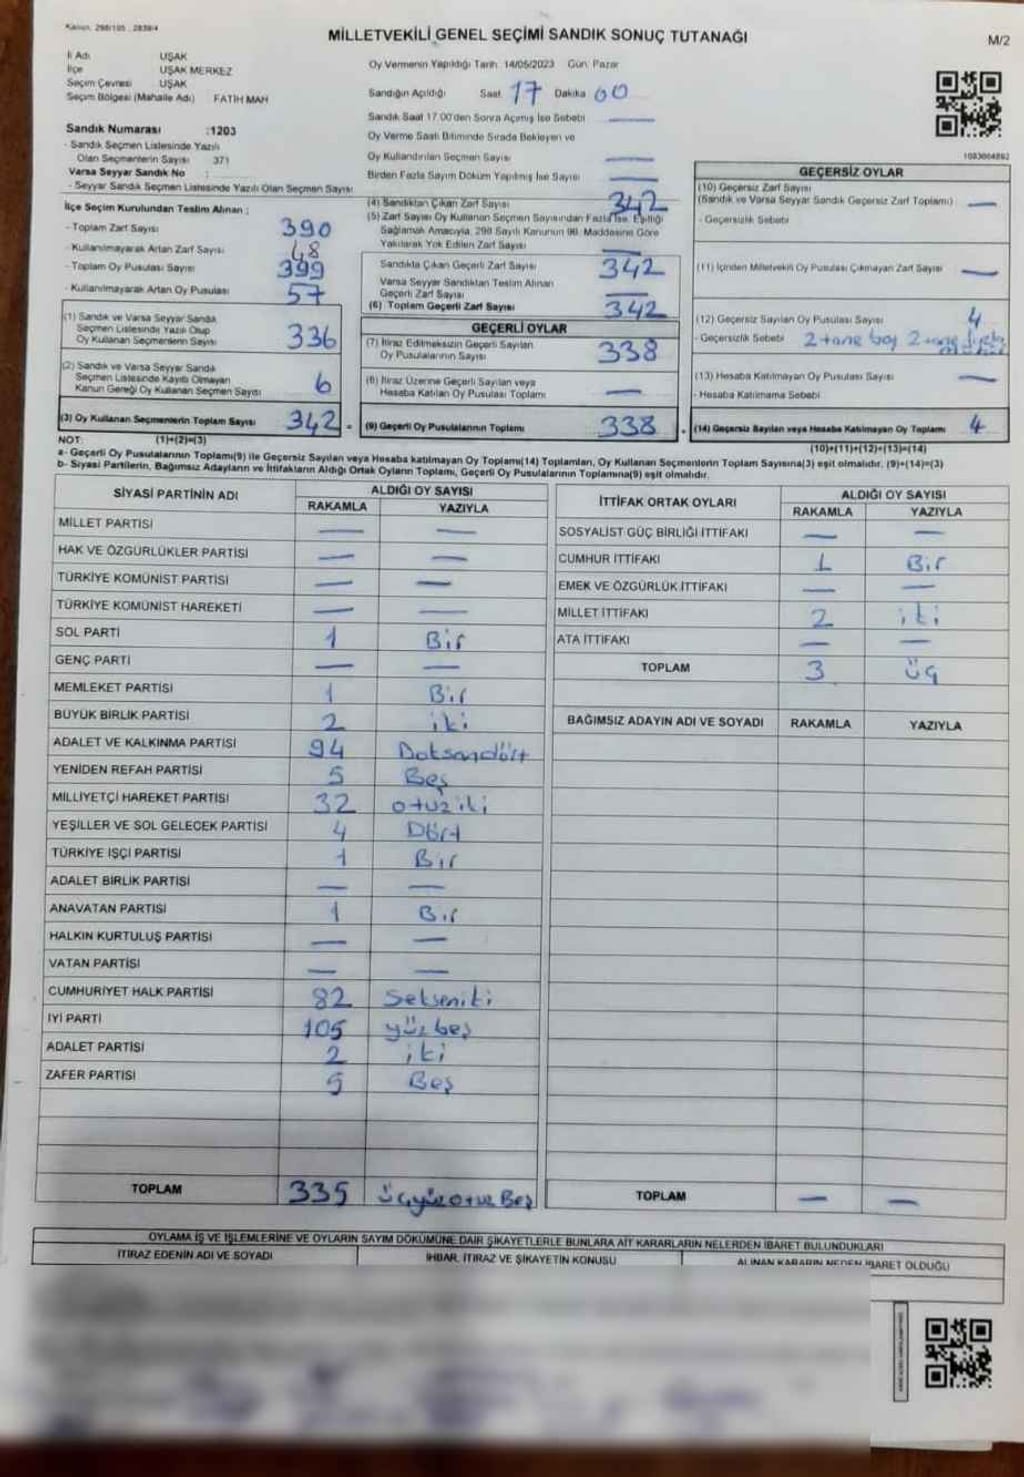 Kanun: 298/105 , 2839/4
MİLLETVEKİLİ GENEL SEÇİMİ SANDIK SONUÇ TUTANAĞI
M/2
İl Adı UŞAK
İlçe UŞAK MERKEZ
Seçim Çevresi UŞAK
Seçim Bölgesi (Mahalle Adı) FATİH MAH
Oy Vermenin Yapıldığı Tarih: 14/05/2023 Gün: Pazar
Sandığın Açıldığı Saat 17 Dakika 00
Sandık Saat 17.00'den Sonra Açılmış İse Sebebi —
Oy Verme Saati Bitiminde Sırada Bekleyen ve
Oy Kullandırılan Seçmen Sayısı —
Birden Fazla Sayım Döküm Yapılmış İse Sayısı —
Sandık Numarası :1203
- Sandık Seçmen Listesinde Yazılı
Olan Seçmenlerin Sayısı 371
Varsa Seyyar Sandık No :
- Seyyar Sandık Seçmen Listesinde Yazılı Olan Seçmen Sayısı
İlçe Seçim Kurulundan Teslim Alınan :
- Toplam Zarf Sayısı 390
- Kullanılmayarak Artan Zarf Sayısı 48
- Toplam Oy Pusulası Sayısı 399
- Kullanılmayarak Artan Oy Pusulası 57
(1) Sandık ve Varsa Seyyar Sandık
Seçmen Listesinde Yazılı Olup
Oy Kullanan Seçmenlerin Sayısı 336
(2) Sandık ve Varsa Seyyar Sandık
Seçmen Listesinde Kayıtlı Olmayan
Kanun Gereği Oy Kullanan Seçmen Sayısı 6
(3) Oy Kullanan Seçmenlerin Toplam Sayısı 342 =
(1)+(2)=(3)
(4) Sandıktan Çıkan Zarf Sayısı 342
(5) Zarf Sayısı Oy Kullanan Seçmen Sayısından Fazla İse, Eşitliği
Sağlamak Amacıyla, 298 Sayılı Kanunun 98. Maddesine Göre
Yakılarak Yok Edilen Zarf Sayısı
Sandıkta Çıkan Geçerli Zarf Sayısı 342
Varsa Seyyar Sandıktan Teslim Alınan
Geçerli Zarf Sayısı —
(6) Toplam Geçerli Zarf Sayısı 342
GEÇERLİ OYLAR
(7) İtiraz Edilmeksizin Geçerli Sayılan
Oy Pusulalarının Sayısı 338
(8) İtiraz Üzerine Geçerli Sayılan veya
Hesaba Katılan Oy Pusulası Toplamı —
(9) Geçerli Oy Pusulalarının Toplamı 338 +
1083004892
GEÇERSİZ OYLAR
(10) Geçersiz Zarf Sayısı
(Sandık ve Varsa Seyyar Sandık Geçersiz Zarf Toplamı) —
- Geçersizlik Sebebi
(11) İçinden Milletvekili Oy Pusulası Çıkmayan Zarf Sayısı —
(12) Geçersiz Sayılan Oy Pusulası Sayısı 4
- Geçersizlik Sebebi 2 tane boş 2 tane
(13) Hesaba Katılmayan Oy Pusulası Sayısı —
- Hesaba Katılmama Sebebi
(14) Geçersiz Sayılan veya Hesaba Katılmayan Oy Toplamı 4
(10)+(11)+(12)+(13)=(14)
NOT:
a- Geçerli Oy Pusulalarının Toplamı(9) ile Geçersiz Sayılan veya Hesaba katılmayan Oy Toplamı(14) Toplamları, Oy Kullanan Seçmenlerin Toplam Sayısına(3) eşit olmalıdır. (9)+(14)=(3)
b- Siyasi Partilerin, Bağımsız Adayların ve İttifakların Aldığı Ortak Oyların Toplamı, Geçerli Oy Pusulalarının Toplamına(9) eşit olmalıdır.
SİYASİ PARTİNİN ADI ALDIĞI OY SAYISI
RAKAMLA YAZIYLA
MİLLET PARTİSİ — —
HAK VE ÖZGÜRLÜKLER PARTİSİ — —
TÜRKİYE KOMÜNİST PARTİSİ — —
TÜRKİYE KOMÜNİST HAREKETİ — —
SOL PARTİ 1 Bir
GENÇ PARTİ — —
MEMLEKET PARTİSİ 1 Bir
BÜYÜK BİRLİK PARTİSİ 2 iki
ADALET VE KALKINMA PARTİSİ 94 Doksandört
YENİDEN REFAH PARTİSİ 5 Beş
MİLLİYETÇİ HAREKET PARTİSİ 32 otuziki
YEŞİLLER VE SOL GELECEK PARTİSİ 4 Dört
TÜRKİYE İŞÇİ PARTİSİ 1 Bir
ADALET BİRLİK PARTİSİ — —
ANAVATAN PARTİSİ 1 Bir
HALKIN KURTULUŞ PARTİSİ — —
VATAN PARTİSİ — —
CUMHURİYET HALK PARTİSİ 82 Seksen iki
İYİ PARTİ 105 yüz beş
ADALET PARTİSİ 2 iki
ZAFER PARTİSİ 5 Beş
TOPLAM 335 üçyüzotuz Beş
İTTİFAK ORTAK OYLARI ALDIĞI OY SAYISI
RAKAMLA YAZIYLA
SOSYALİST GÜÇ BİRLİĞİ İTTİFAKI — —
CUMHUR İTTİFAKI 1 Bir
EMEK VE ÖZGÜRLÜK İTTİFAKI — —
MİLLET İTTİFAKI 2 iki
ATA İTTİFAKI — —
TOPLAM 3 üç
BAĞIMSIZ ADAYIN ADI VE SOYADI RAKAMLA YAZIYLA
TOPLAM — —
OYLAMA İŞ VE İŞLEMLERİNE VE OYLARIN SAYIM DÖKÜMÜNE DAİR ŞİKAYETLERLE BUNLARA AİT KARARLARIN NELERDEN İBARET BULUNDUKLARI
İTİRAZ EDENİN ADI VE SOYADI İHBAR, İTİRAZ VE ŞİKAYETİN KONUSU ALINAN KARARIN NEDEN İBARET OLDUĞU